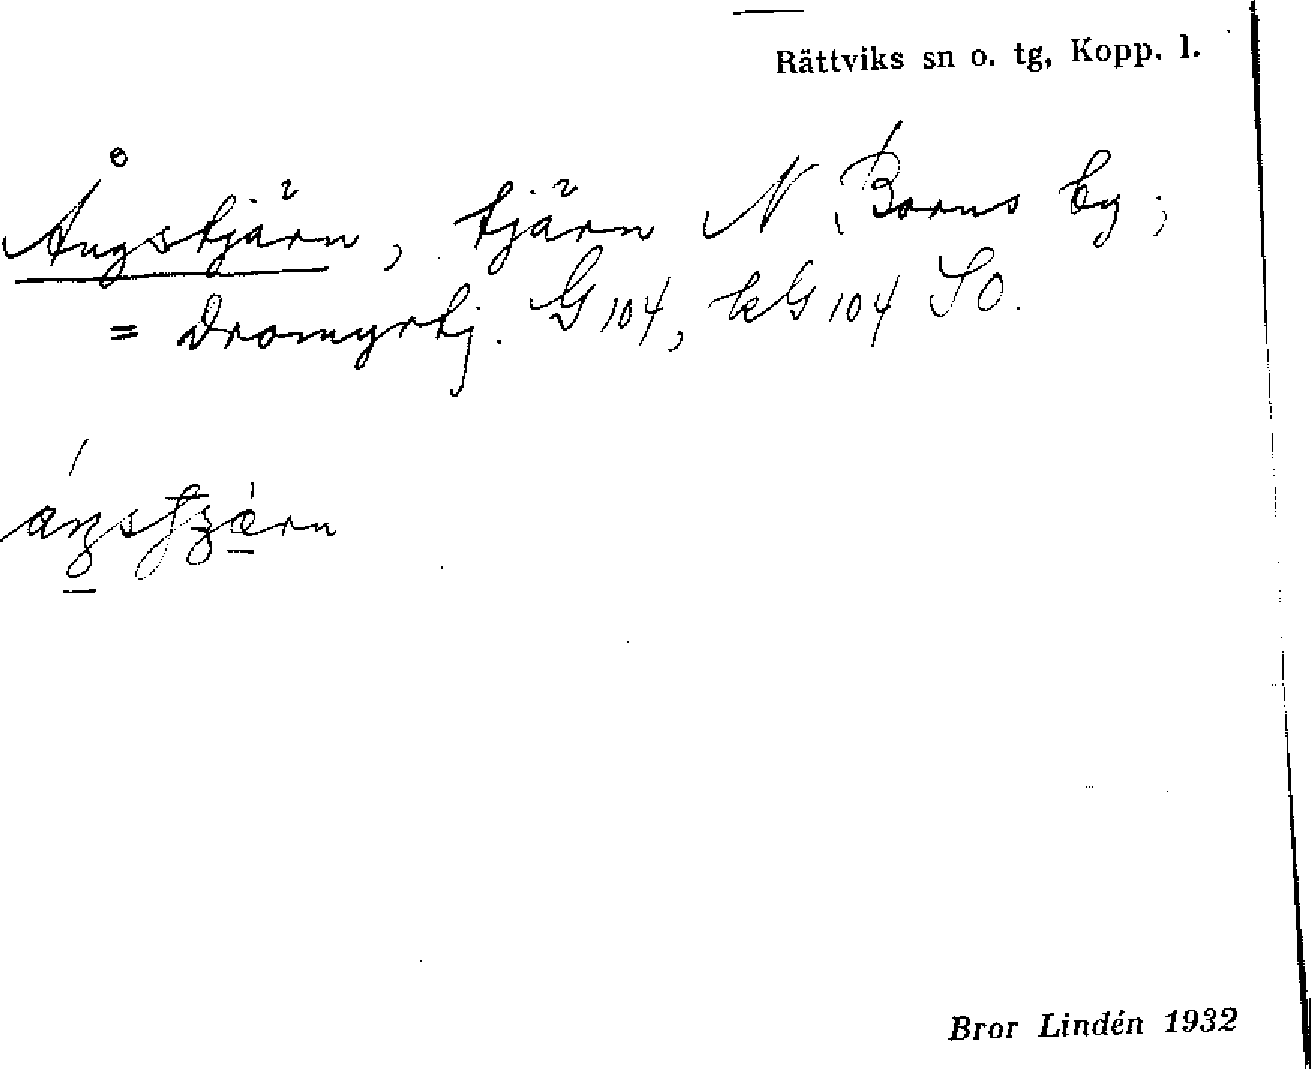 Rättviks sn o. tg, Kopp. l.
Ångstjärn, tjärn N Borns by;
= Dromyrtj. G 104, kG 104 SO.
Bror Lindén 1932